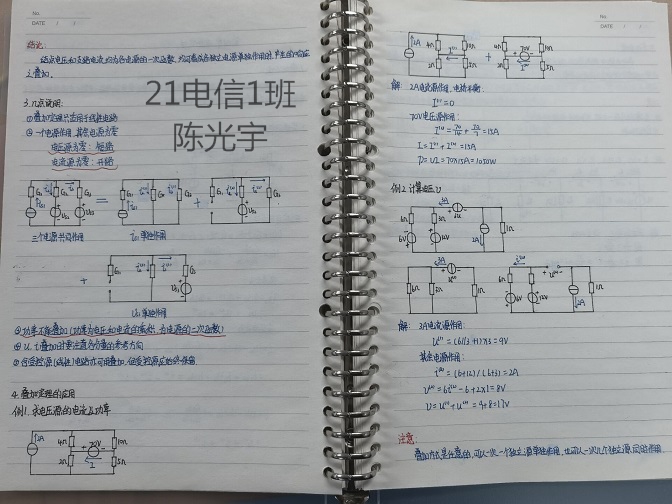 No.
DATE / /
结论:
结点电压和支路电流均为各电源的一次函数,均可看成各独立电源单独作用时,产生的响应
之叠加。
3.几点说明:
①叠加定理只适用于线性电路
②一个电源作用,其余电源为零
电压源为零:短路
电流源为零:开路
三个电源共同作用
is1单独作用
us2单独作用
③功率不能叠加(功率为电压和电流的乘积,为电源的二次函数)
④u, i叠加时要注意各分量的参考方向
⑤含受控源(线性)电路亦可用叠加,但受控源应始终保留
4. 叠加定理的应用
例1. 求电压源的电流及功率
2A 4Ω 70V 10Ω
2Ω I 5Ω
21电信1班
陈光宇
No.
DATE / /
2A 4Ω 10Ω + 4Ω 70V 10Ω
2Ω 5Ω 2Ω 5Ω
解: 2A电流源作用,电桥平衡.
I⁽¹⁾=0
70V电压源作用:
I = I⁽¹⁾ + I⁽²⁾ = 15A
P = UI = 70×15A = 1050W
例2. 计算电压U
解: 3A电流源作用:
U⁽¹⁾ = (6//3+1)×3 = 9V
其余电源作用:
i⁽²⁾ = (6+12)/(6+3) = 2A
U⁽²⁾ = 6i⁽²⁾ - 6 + 2×1 = 8V
U = U⁽¹⁾ + U⁽²⁾ = 9+8 = 17V
注意:
叠加方式是任意的,可以一次一个独立源单独作用,也可以一次几个独立源同时作用